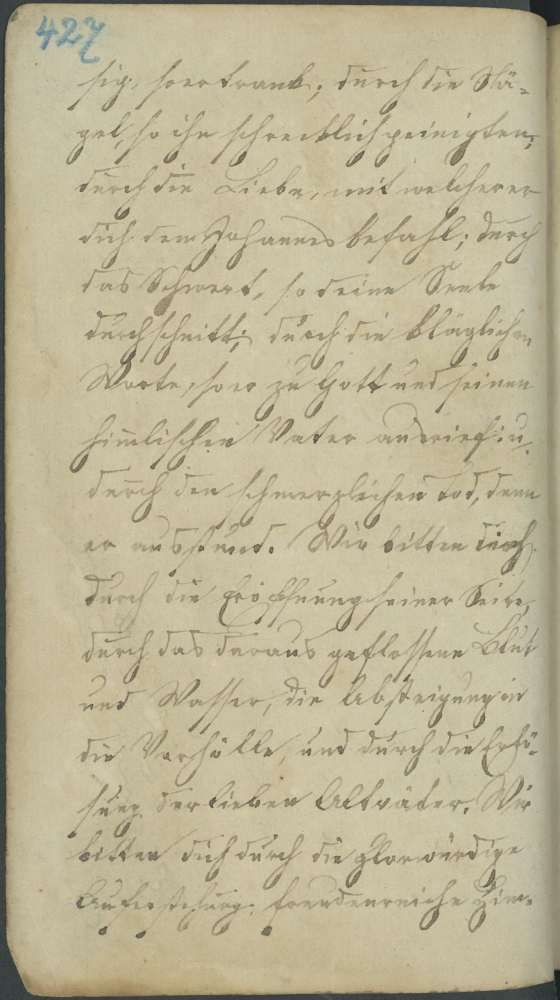 427
sig, so er trank; durch die Nä-
gel, so ihn schrecklich peinigten;
durch die Liebe, mit welcher er
dich dem Johannes befahl; durch
das Schwert, so deine Seele
durchschnitt; durch die kläglichen
Worte, so er zu Gott und seinen
himlischen Vater ausrief: u.
durch den schmerzlichen Tod, denn
er ausstund. Wir bitten dich
durch die Eröffnung seiner Seite,
durch das daraus geflossene Blut
und Wasser, die Absteigung in
die Vorhölle, und durch die Erlö-
sung der lieben Altväter. Wir
bitten dich durch die glorwürdige
Auferstehung, freudenreiche Him-